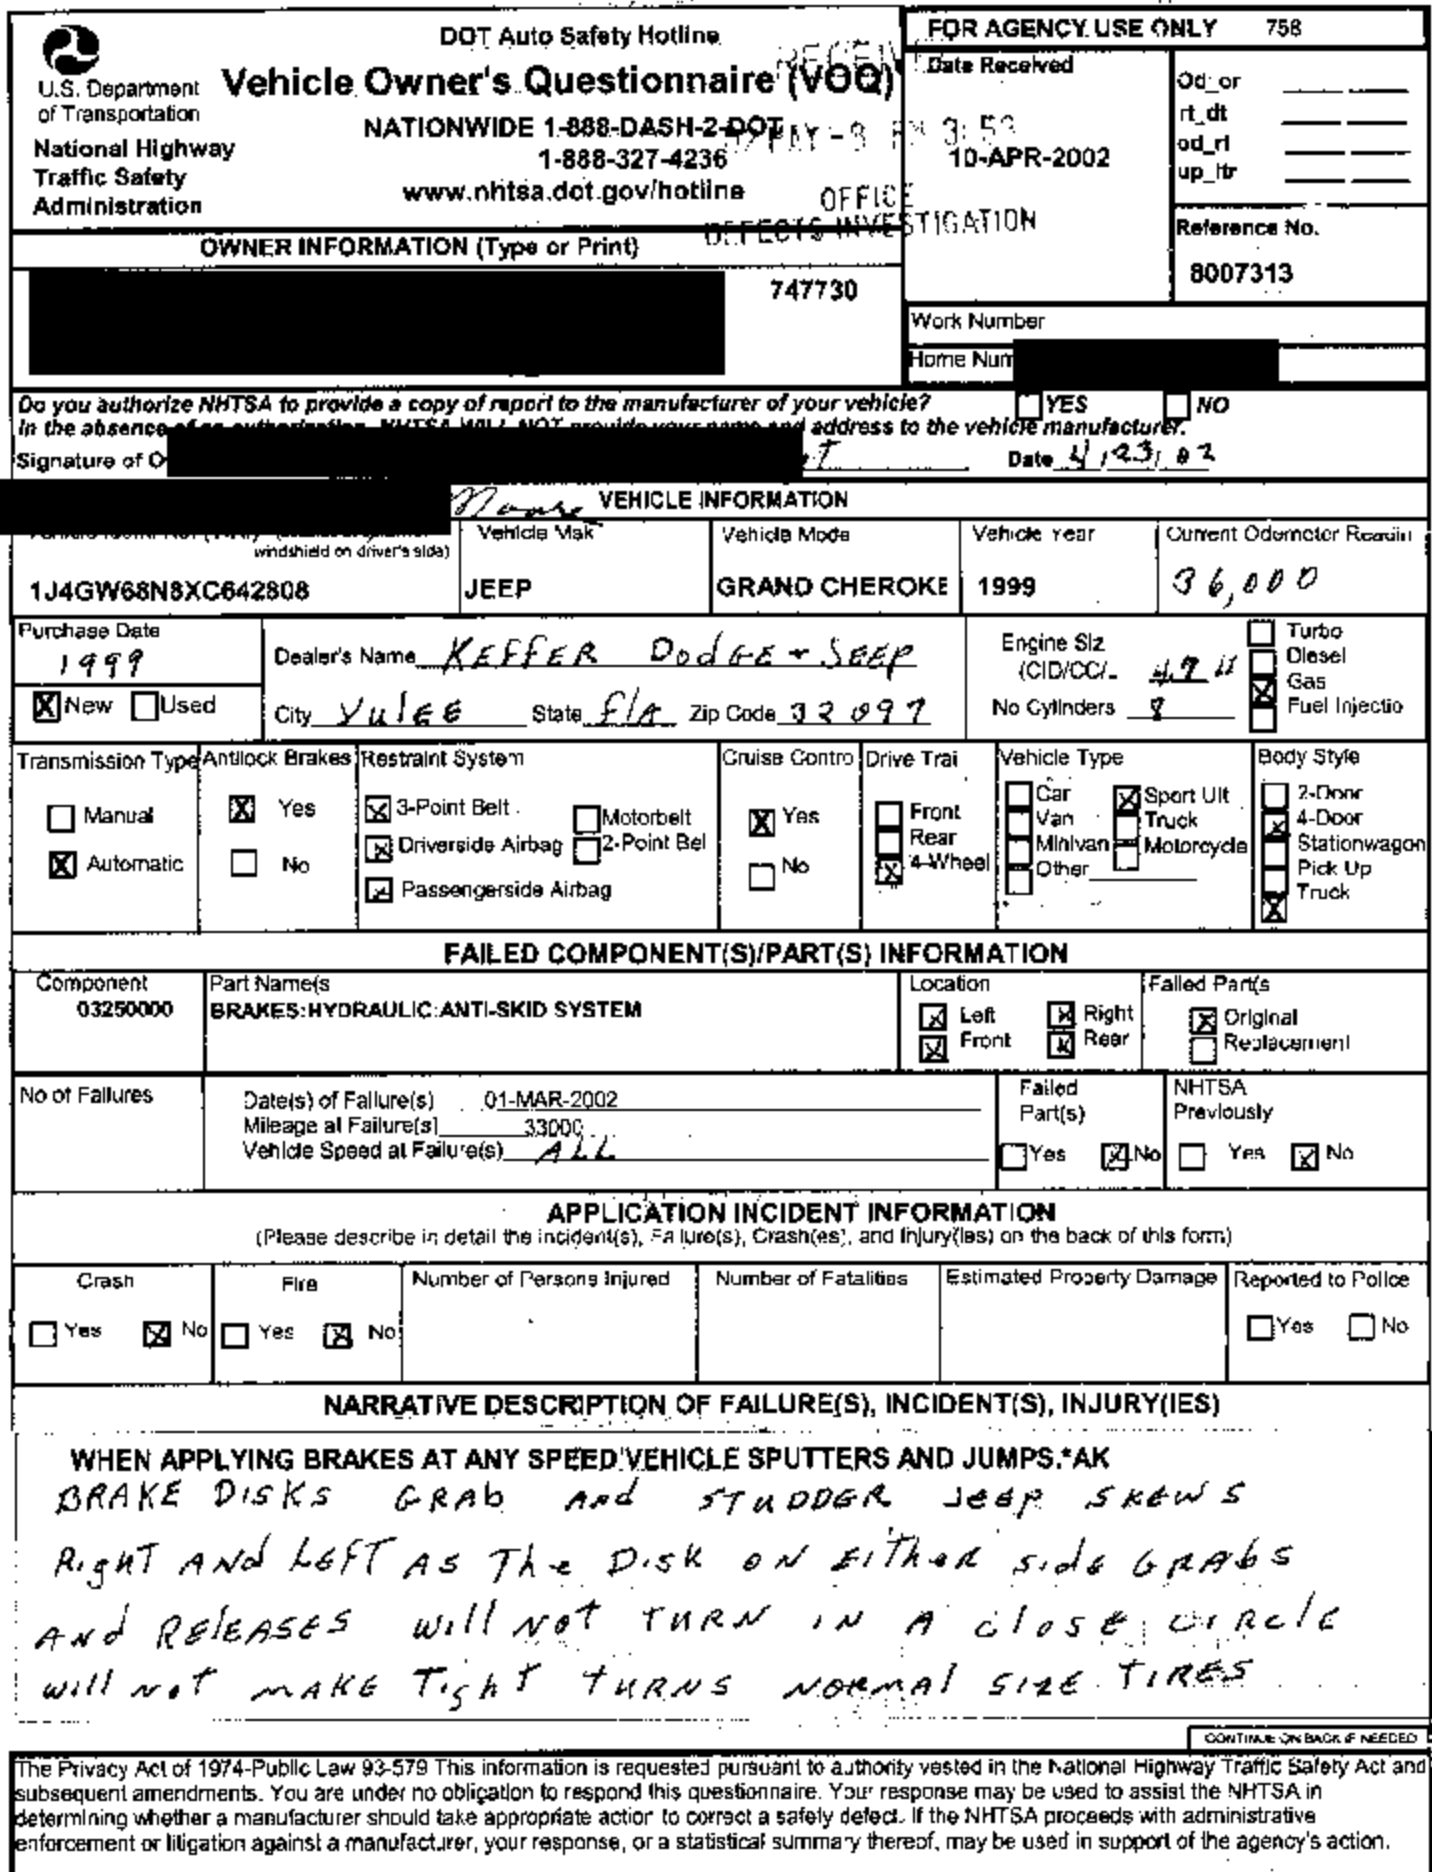 DOT Auto Safety Hotline
Vehicle Owner's Questionnaire (VOQ)
NATIONWIDE 1-888-DASH-2-DOT
1-888-327-4236
www.nhtsa.dot.gov/hotline
U.S. Department
of Transportation
National Highway
Traffic Safety
Administration
MAY - 3 PM 3: 53
OFFICE
DEFECTS INVESTIGATION
FOR AGENCY USE ONLY 758
Date Received
10-APR-2002
Od_or
rt_dt
od_rl
up_ltr
Reference No.
8007313
OWNER INFORMATION (Type or Print)
747730
Work Number
Home Num
Do you authorize NHTSA to provide a copy of report to the manufacturer of your vehicle? YES NO
In the absence of an authorization, NHTSA WILL NOT provide your name and address to the vehicle manufacturer.
Signature of O Date 4/23/02
VEHICLE INFORMATION
windshield on driver's side)
1J4GW68N8XC642808
Vehicle Mak
JEEP
Vehicle Mode
GRAND CHEROKE
Vehicle Year
1999
Current Odometer Readin
36,000
Purchase Date
1999
X New Used
Dealer's Name KEFFER DodGE - JEEP
City YulEE State FlA Zip Code 32097
Engine Siz
(CID/CC/L 4.7
No Cylinders 8
Turbo
Diesel
X Gas
Fuel Injectio
Transmission Type
Manual
X Automatic
Antilock Brakes
X Yes
No
Restraint System
X 3-Point Belt
X Driverside Airbag
X Passengerside Airbag
Motorbelt
2-Point Bel
Cruise Contro
X Yes
No
Drive Trai
Front
Rear
X 4-Wheel
Vehicle Type
Car
Van
Minivan
Other
X Sport Ult
Truck
Motorcycle
Body Style
2-Door
X 4-Door
Stationwagon
Pick Up
Truck
X
FAILED COMPONENT(S)/PART(S) INFORMATION
Component
03250000
Part Name(s
BRAKES:HYDRAULIC:ANTI-SKID SYSTEM
Location
X Left X Right
X Front X Rear
Failed Part(s
X Original
Replacement
No of Failures
Date(s) of Failure(s) 01-MAR-2002
Mileage at Failure(s) 33000
Vehicle Speed at Failure(s) ALL
Failed
Part(s)
Yes X No
NHTSA
Previously
Yes X No
APPLICATION INCIDENT INFORMATION
(Please describe in detail the incident(s), Failure(s), Crash(es), and Injury(ies) on the back of this form)
Crash
Yes X No
Fire
Yes X No
Number of Persons Injured
Number of Fatalities
Estimated Property Damage
Reported to Police
Yes No
NARRATIVE DESCRIPTION OF FAILURE(S), INCIDENT(S), INJURY(IES)
WHEN APPLYING BRAKES AT ANY SPEED VEHICLE SPUTTERS AND JUMPS.*AK
BRAKE DISKS GRAb And STUDDER JEEP SKEWS
RighT ANd LEFT AS The DISK ON EiTher sidE GRAbS
ANd RElEASES will NoT TURN IN A close circlE
will noT mAKE TighT TURNS NORMAl SIZE TIRES
CONTINUE ON BACK IF NEEDED
The Privacy Act of 1974-Public Law 93-579 This information is requested pursuant to authority vested in the National Highway Traffic Safety Act and
subsequent amendments. You are under no obligation to respond this questionnaire. Your response may be used to assist the NHTSA in
determining whether a manufacturer should take appropriate action to correct a safety defect. If the NHTSA proceeds with administrative
enforcement or litigation against a manufacturer, your response, or a statistical summary thereof, may be used in support of the agency's action.